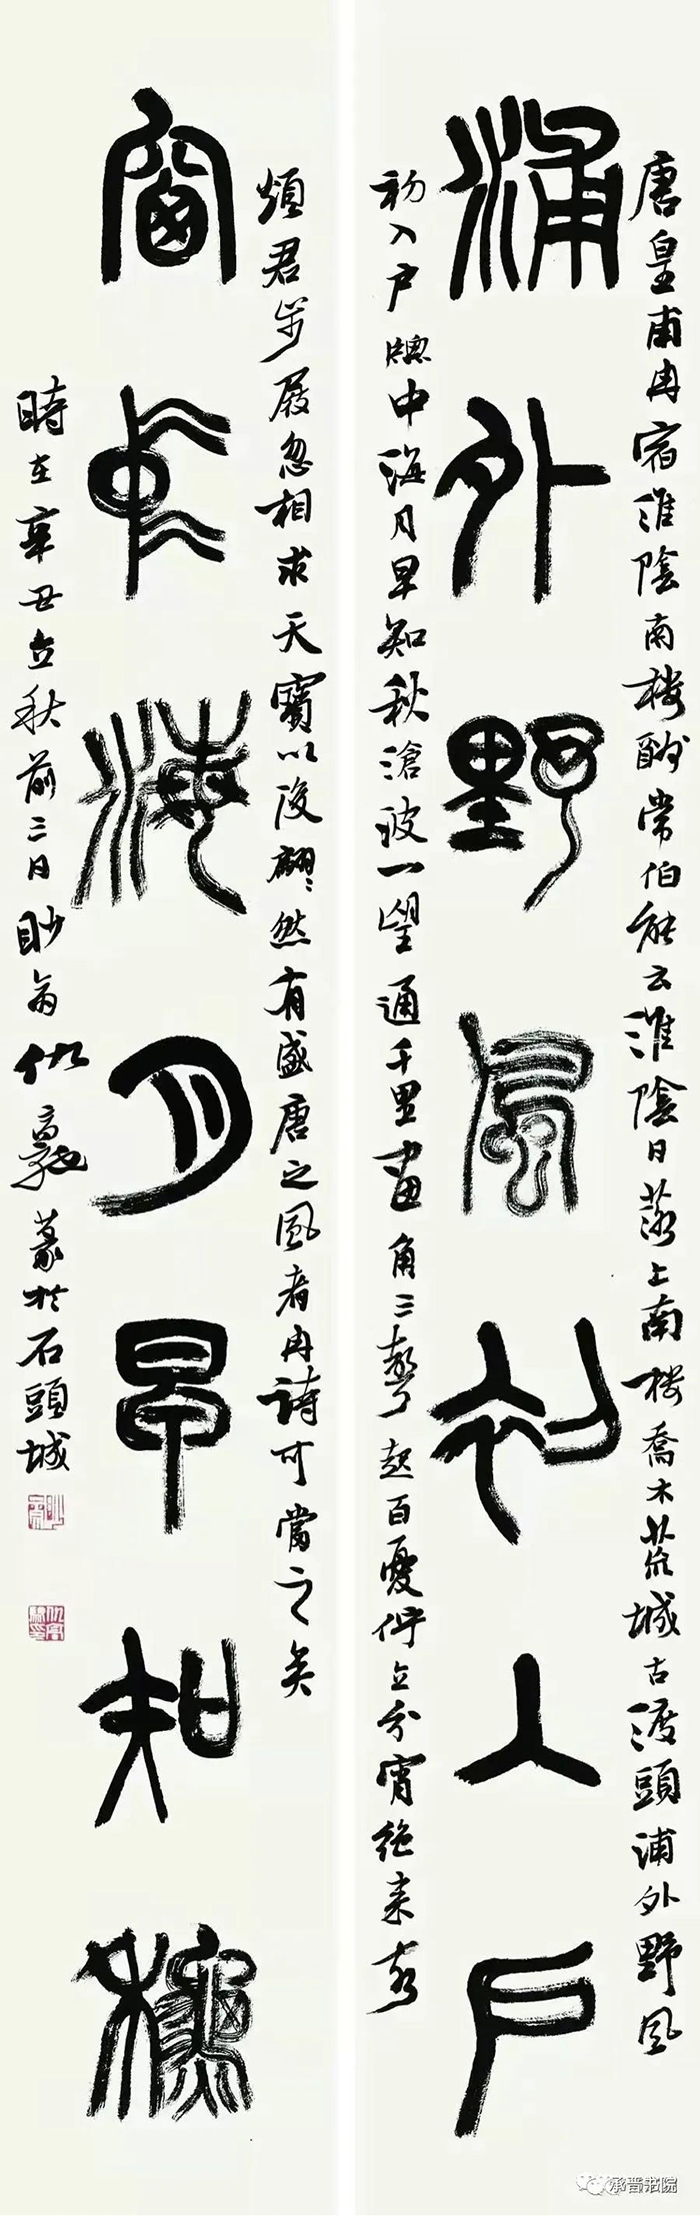 唐皇甫冉宿淮陰南樓酬常伯能云淮陰日落上南樓喬木荒城古渡頭浦外野風
浦外野風初入戶
初入戶牕中海月早知秋滄波一望通千里畫角三聲起百憂佇立分宵絕來客
煩君步屐忽相求天寶以後翩〻然有盛唐之風者冉詩可當之矣
窗中海月早知秋
時在辛丑立秋前三日眇翁仇高馳篆於石頭城
承晋书院